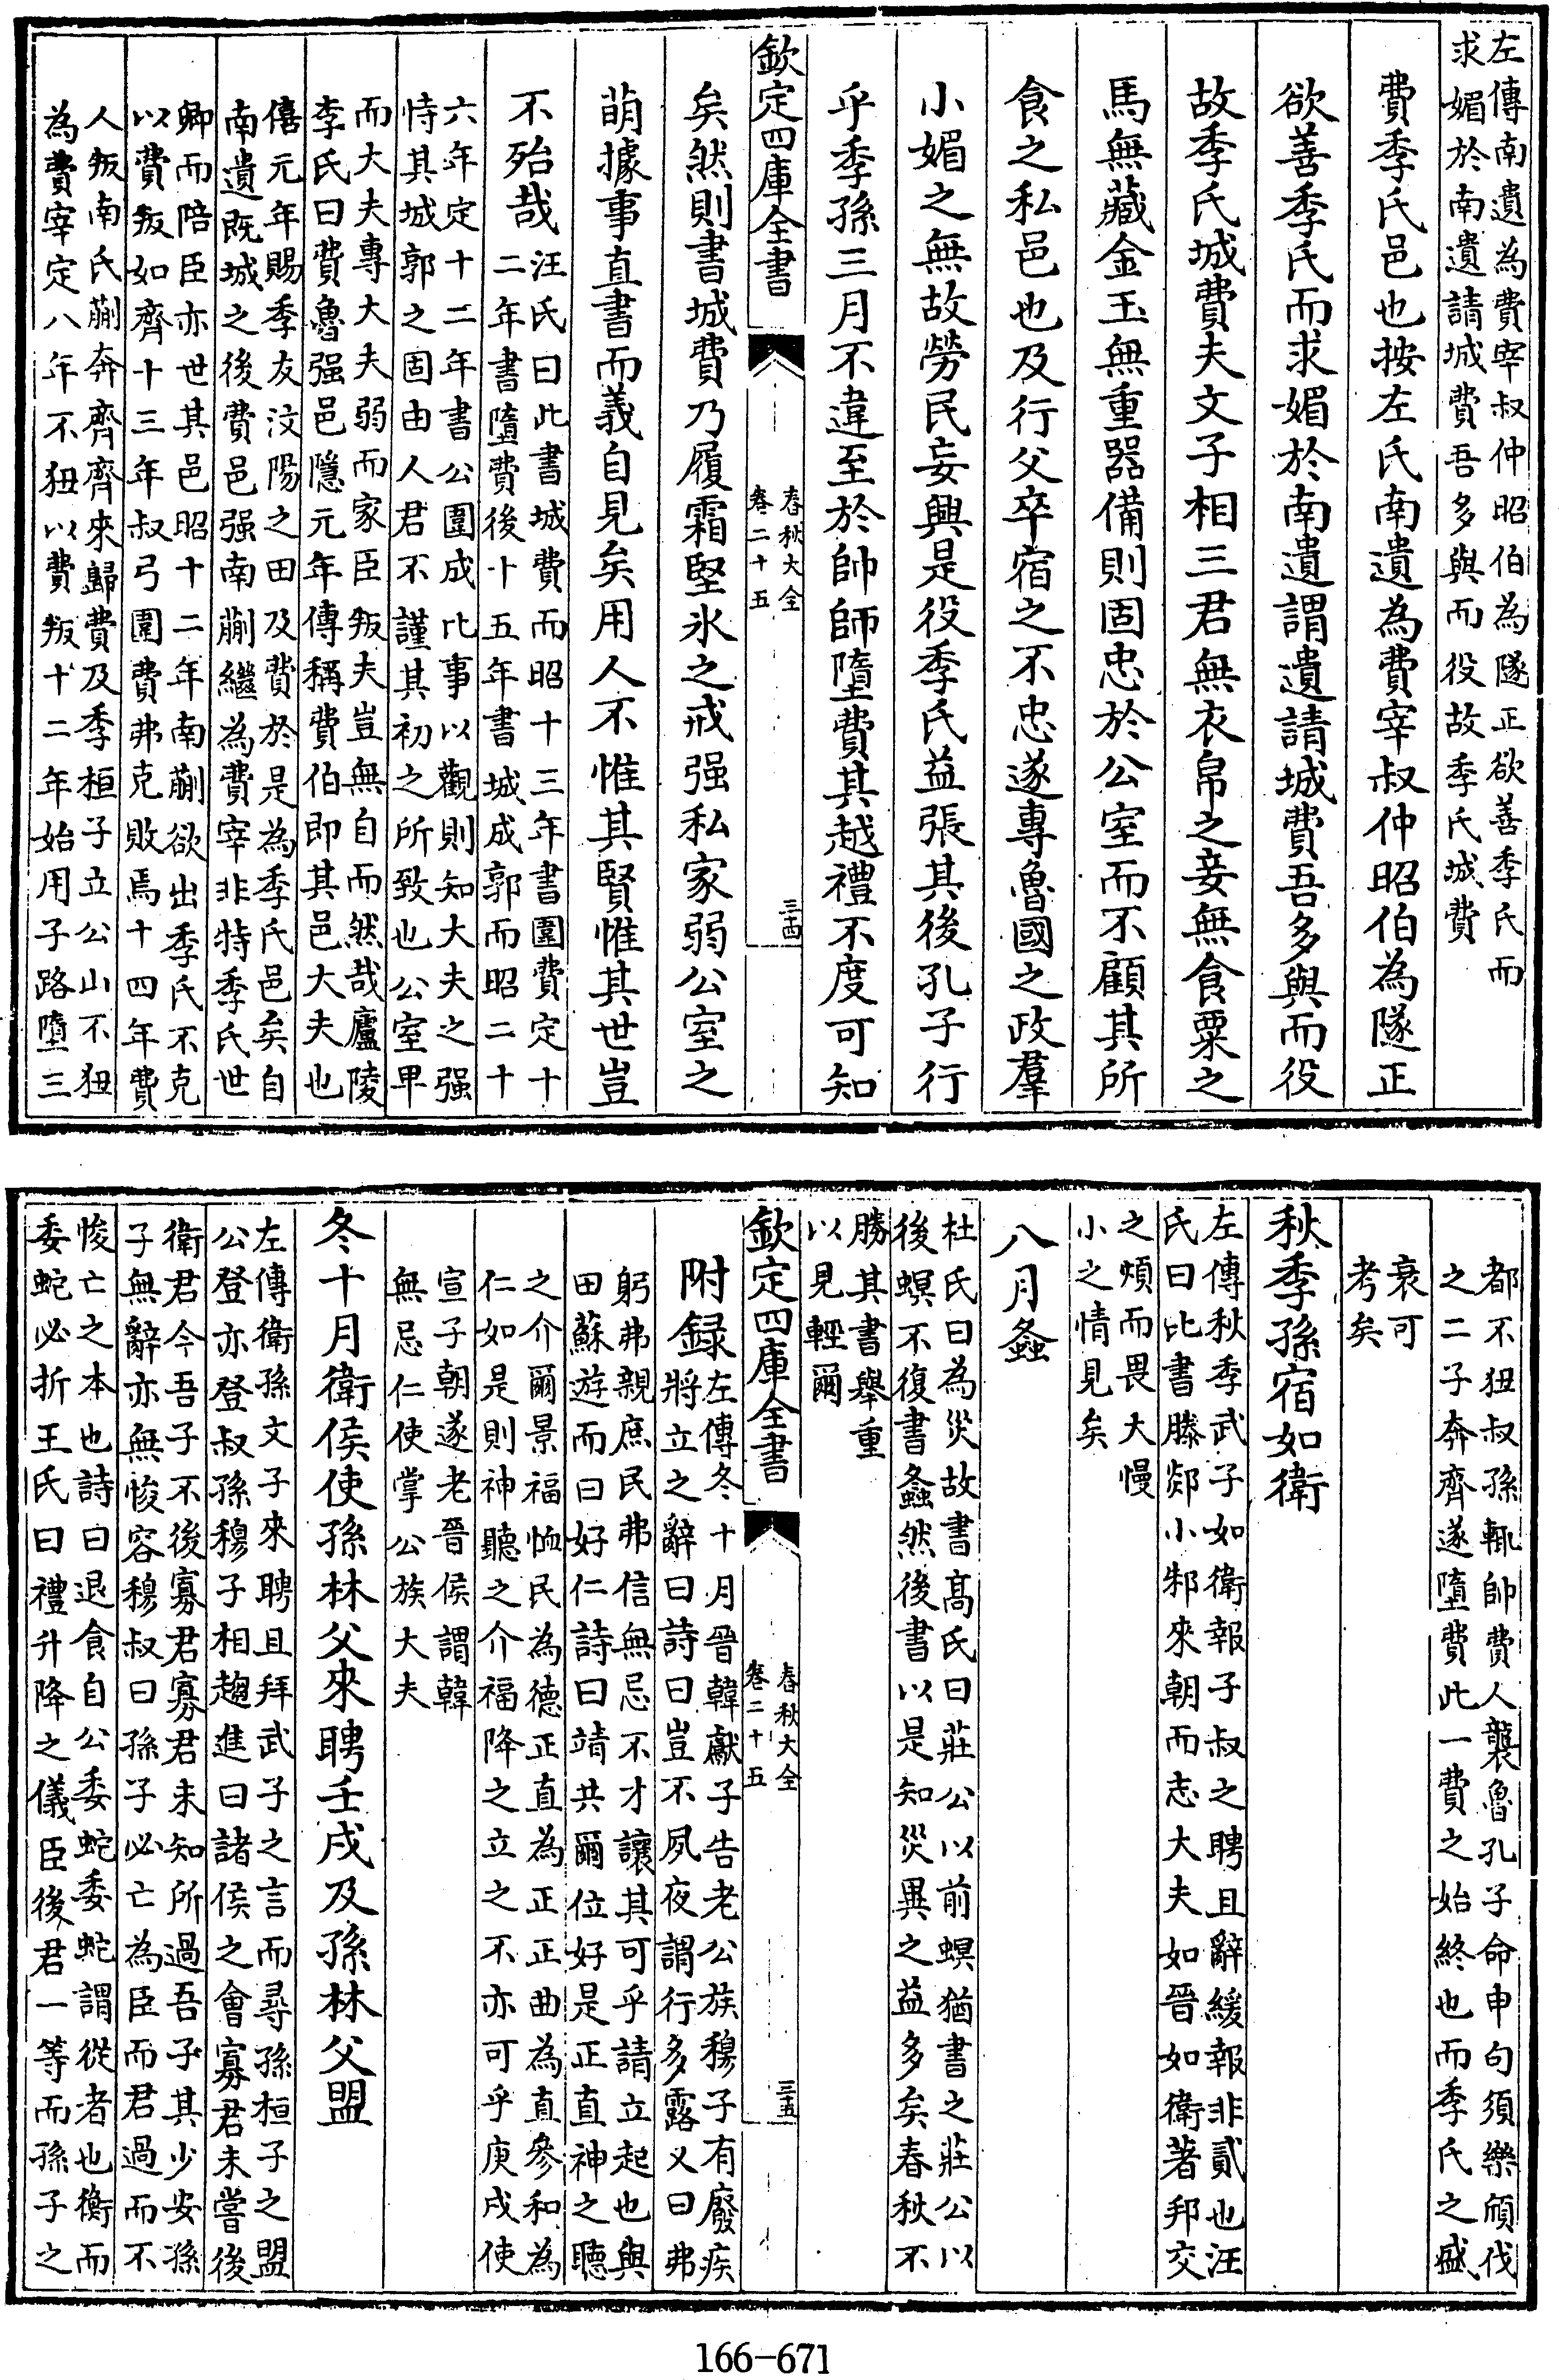 左傳南遺為費宰叔仲昭伯為隧正欲善季氏而
求媚於南遺請城費吾多與而役故季氏城費
費季氏邑也按左氏南遺為費宰叔仲昭伯為隧正
欲善季氏而求媚於南遺謂遺請城費吾多與而役
故季氏城費夫文子相三君無衣帛之妾無食粟之
馬無藏金玉無重器備則固忠於公室而不顧其所
食之私邑也及行父卒宿之不忠遂專魯國之政羣
小媚之無故勞民妄興是役季氏益張其後孔子行
乎季孫三月不違至於帥師墮費其越禮不度可知
欽定四庫全書
春秋大全
卷二十五
三十四
矣然則書城費乃履霜堅氷之戒强私家弱公室之
萌據事直書而義自見矣用人不惟其賢惟其世豈
不殆哉
汪氏曰此書城費而昭十三年書圍費定十
二年書墮費後十五年書城成郛而昭二十
六年定十二年書公圍成比事以觀則知大夫之强
恃其城郭之固由人君不謹其初之所致也公室卑
而大夫專大夫弱而家臣叛夫豈無自而然哉廬陵
李氏曰費魯强邑隱元年傳稱費伯即其邑大夫也
僖元年賜季友汶陽之田及費於是為季氏邑矣自
南遺既城之後費邑强南蒯繼為費宰非特季氏世
卿而陪臣亦世其邑昭十二年南蒯欲出季氏不克
以費叛如齊十三年叔弓圍費弗克敗焉十四年費
人叛南氏蒯奔齊齊來歸費及季桓子立公山不狃
為費宰定八年不狃以費叛十二年始用子路墮三
都不狃叔孫輒帥費人襲魯孔子命申句須樂頎伐
之二子奔齊遂墮費此一費之始終也而季氏之盛
衰可
考矣
秋季孫宿如衛
左傳秋季武子如衛報子叔之聘且辭緩報非貳也汪
氏曰比書滕郯小邾來朝而志大夫如晉如衛著邦交
之煩而畏大慢
小之情見矣
八月螽
杜氏曰為災故書髙氏曰莊公以前螟猶書之莊公以
後螟不復書螽然後書以是知災異之益多矣春秋不
勝其書舉重
以見輕爾
欽定四庫全書
春秋大全
卷二十五
三十五
附録
左傳冬十月晉韓獻子告老公族穆子有廢疾
將立之辭曰詩曰豈不夙夜謂行多露又曰弗
躬弗親庶民弗信無忌不才讓其可乎請立起也與
田蘇游而曰好仁詩曰靖共爾位好是正直神之聽
之介爾景福恤民為德正直為正正曲為直參和為
仁如是則神聽之介福降之立之不亦可乎庚戌使
宣子朝遂老晉侯謂韓
無忌仁使掌公族大夫
冬十月衛侯使孫林父來聘壬戌及孫林父盟
左傳衛孫文子來聘且拜武子之言而尋孫桓子之盟
公登亦登叔孫穆子相趨進曰諸侯之會寡君未嘗後
衛君今吾子不後寡君寡君未知所過吾子其少安孫
子無辭亦無悛容穆叔曰孫子必亡為臣而君過而不
悛亡之本也詩曰退食自公委蛇委蛇謂從者也衡而
委蛇必折王氏曰禮升降之儀臣後君一等而孫子之
166-671